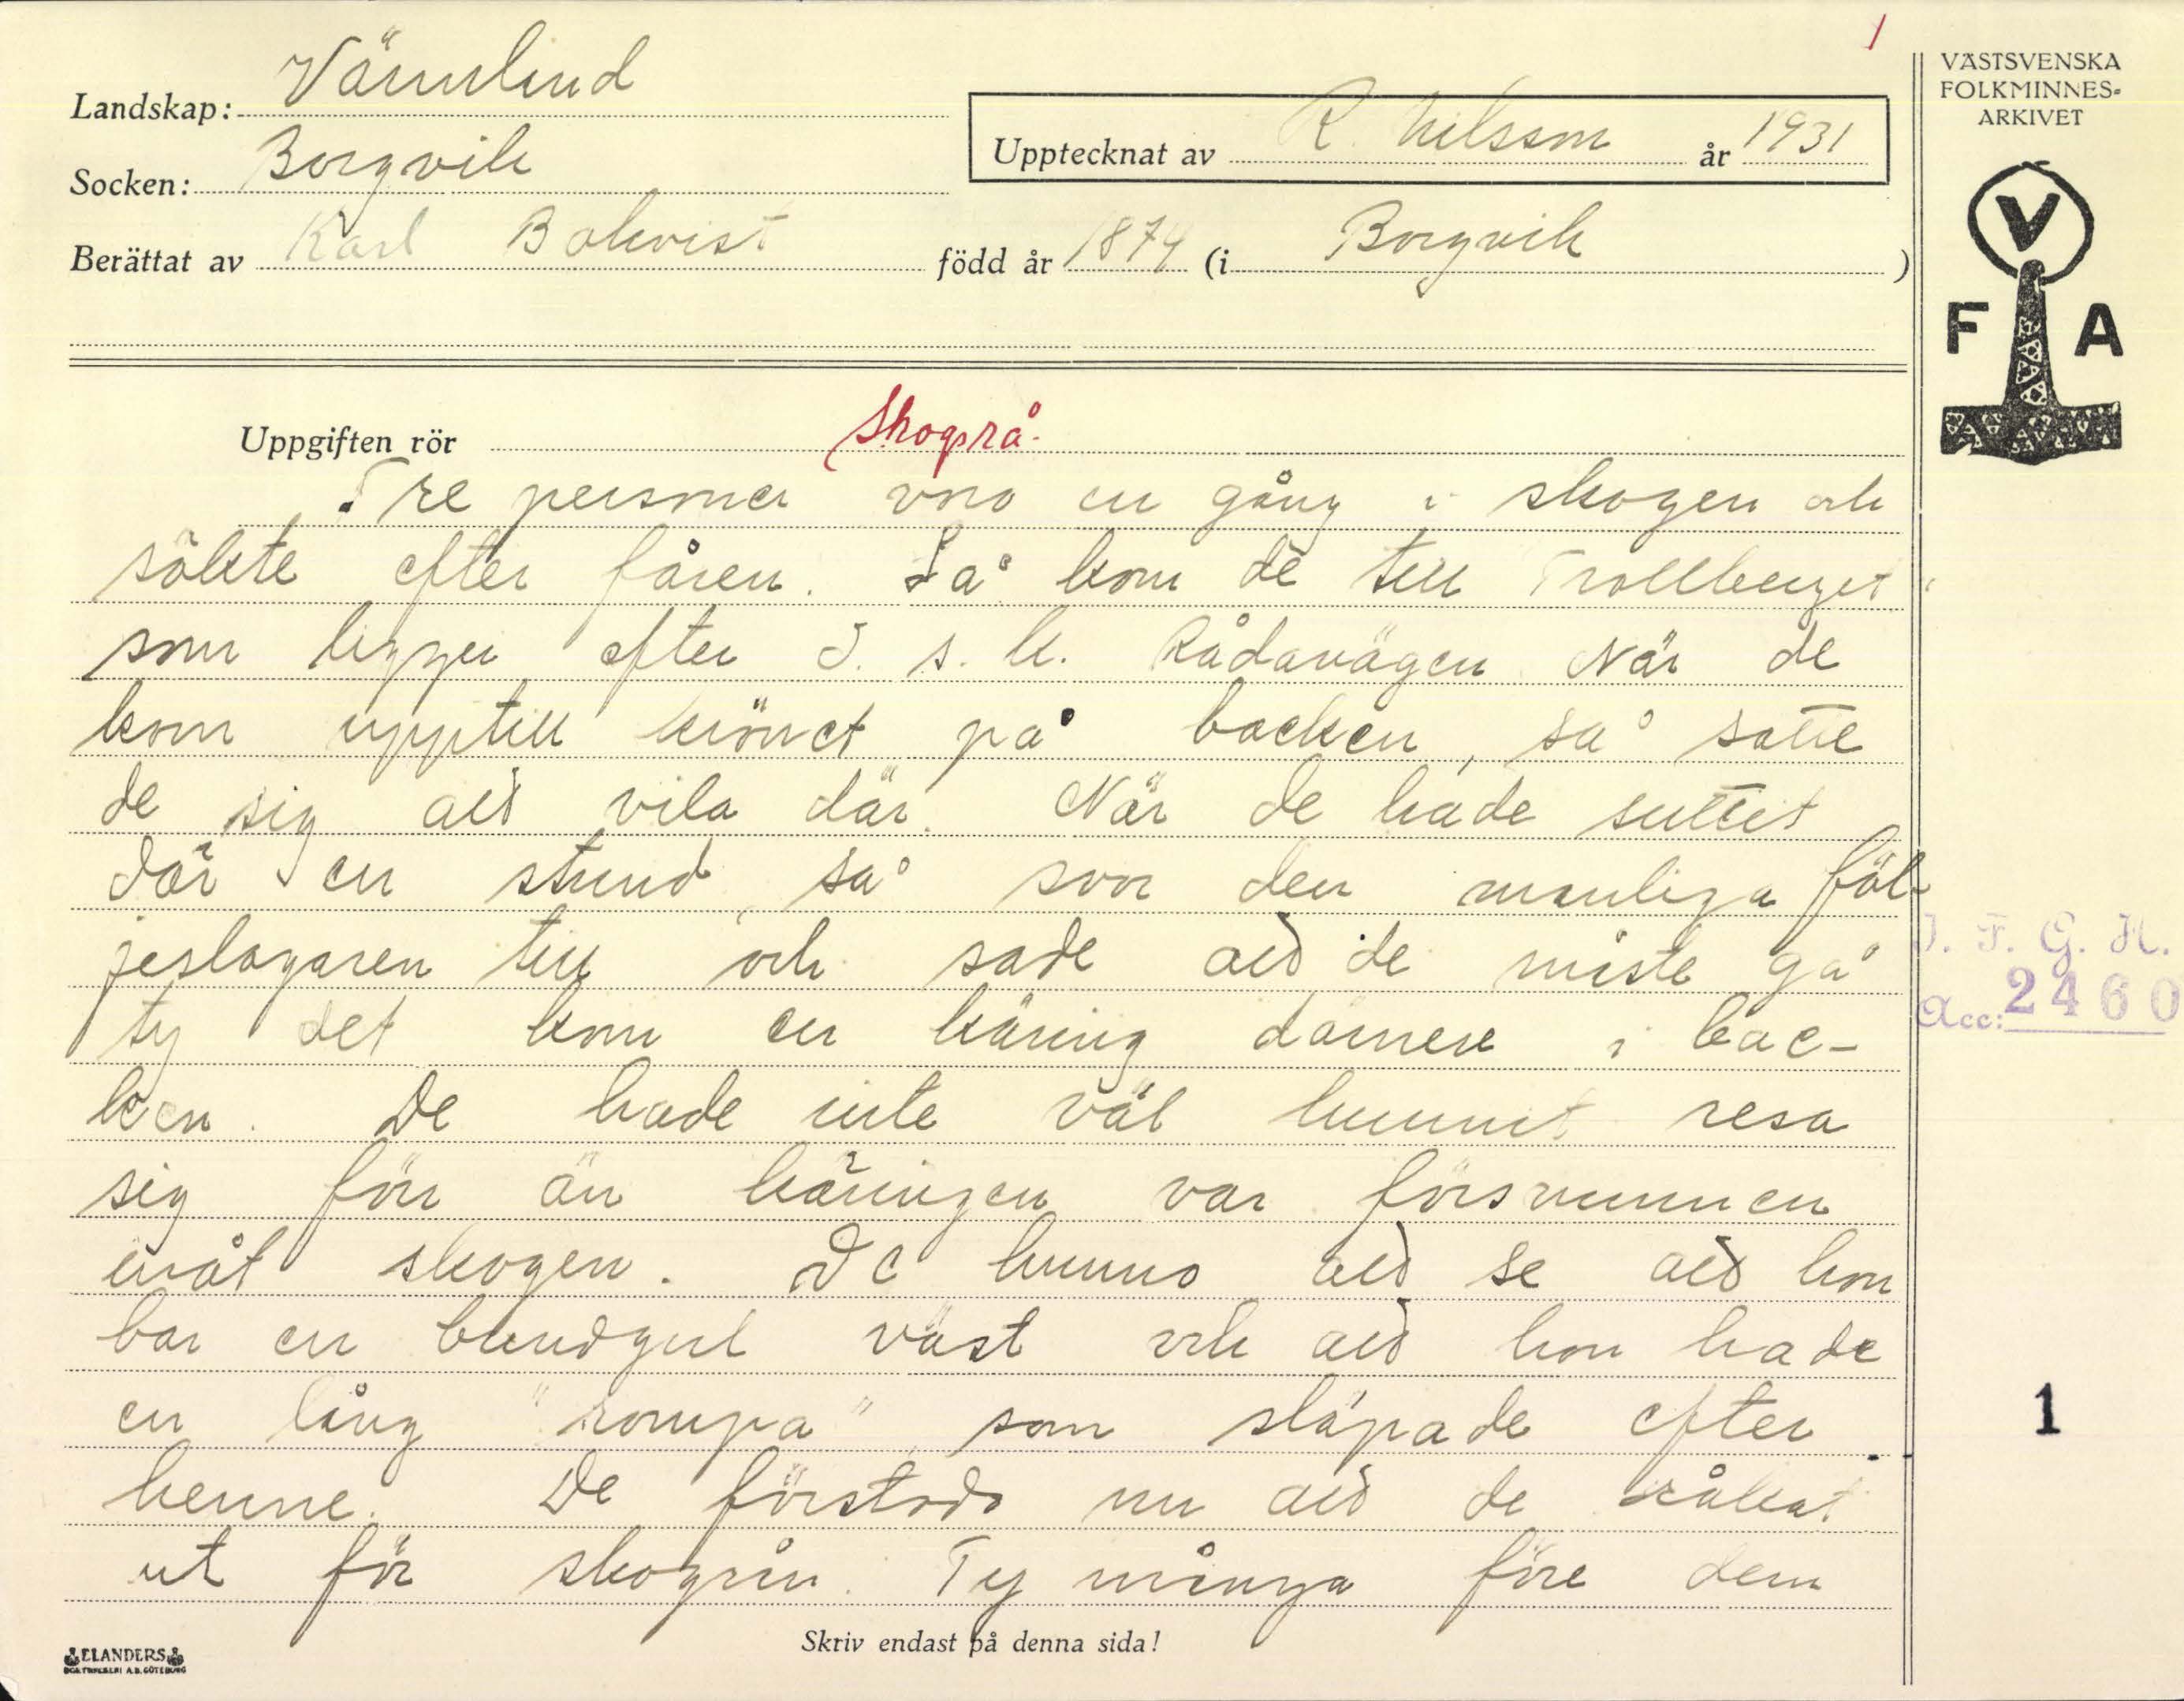 1
VÄSTSVENSKA
FOLKMINNES-
ARKIVET
Landskap: Värmland
Upptecknat av R. Nilsson år 1931
Socken: Borgvik
Berättat av Karl Bokvist född år 1874 (i Borgvik )
V
F A
Uppgiften rör Skogsrå.
Tre personer voro en gång i skogen och
sökte efter fåren. Så kom de till Trollberget
som ligger efter d. s. k. Rådavägen. När de
kom upptill krönet på backen, så satte
de sig att vila där. När de hade suttit
där en stund, så svor den manliga föl-
jeslagaren till och sade att de måste gå
ty det kom en käring därnere i bac-
ken. De hade inte väl hunnit resa
sig förr än käringen var försvunnen
inåt skogen. De hunno att se att hon
bar en brandgul väst och att hon hade
en lång "rompa", som släpade efter
henne. De förstodo nu att de råkat
ut för skogsrån. Ty många före dem
J. F. G. H.
Acc: 2460
1
Skriv endast på denna sida!
ELANDERS
BOKTRYCKERI A.B. GÖTEBORG